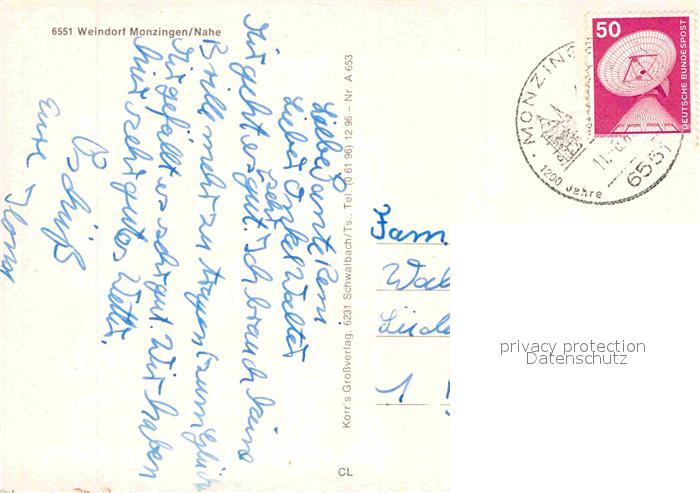 6551 Weindorf Monzingen/Nahe
Liebe Tante Reni
Lieber Onkel Walter
Mir geht es sehr gut. Ich brauch keine
Brill mehr zu tragen zum Glück
Mir gefällt es sehr gut. Wir haben
hier sehr gutes Wetter.
Tschüß
Eure
Korr's Großverlag, 6231 Schwalbach/Ts., Tel. (0 61 96) 12 96 – Nr. A 653
CL
50
DEUTSCHE BUNDESPOST
MONZING
1200 Jahre
6551
Fam
1
privacy protection
Datenschutz